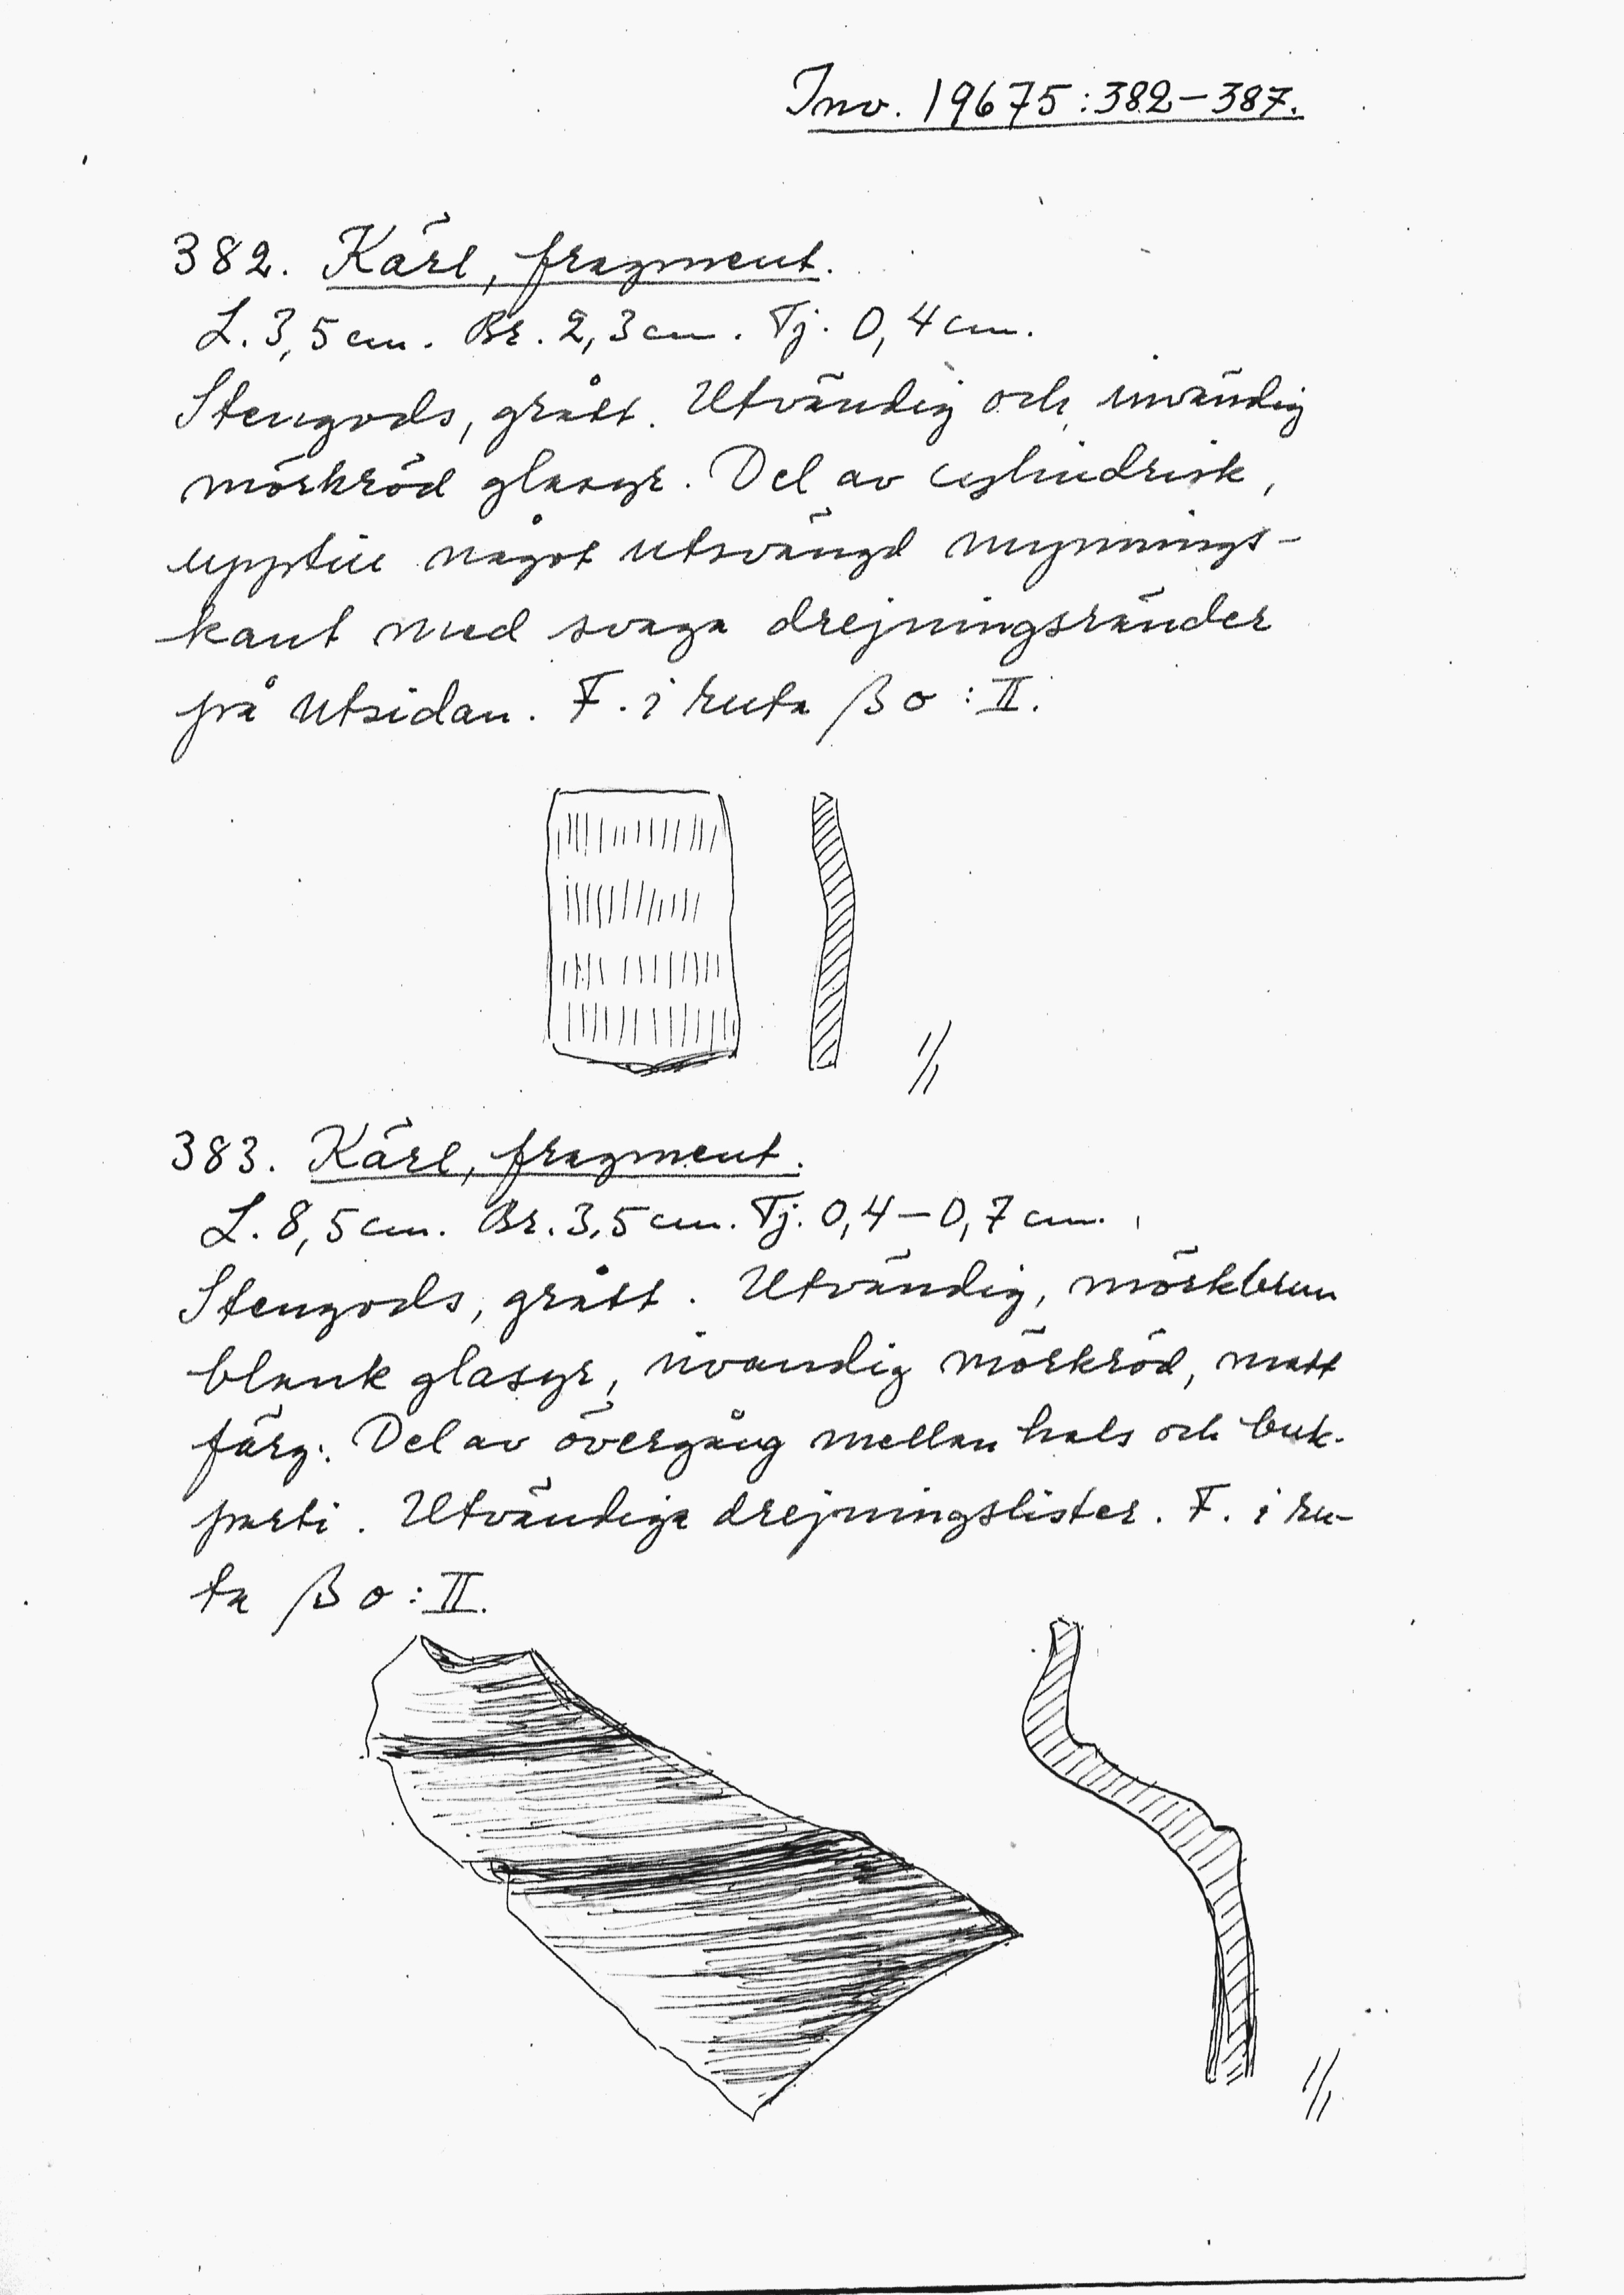 Inv. 19675:382–387.
382. Kärl, fragment.
L. 3,5 cm. Br. 2,3 cm. Tj. 0,4 cm.
Stengods, grått. Utvändig och invändig
mörkröd glasyr. Del av cylindrisk,
upptill något utsvängd mynnings-
kant med svaga drejningsränder
på utsidan. F. i ruta β o : II.
1/1
383. Kärl, fragment.
L. 8,5 cm. Br. 3,5 cm. Tj. 0,4–0,7 cm.
Stengods, grått. Utvändig, mörkbrun
blank glasyr, invändig mörkröd, matt
färg. Del av övergång mellan hals och buk-
parti. Utvändiga drejningslister. F. i ru-
ta β o : II.
1/1